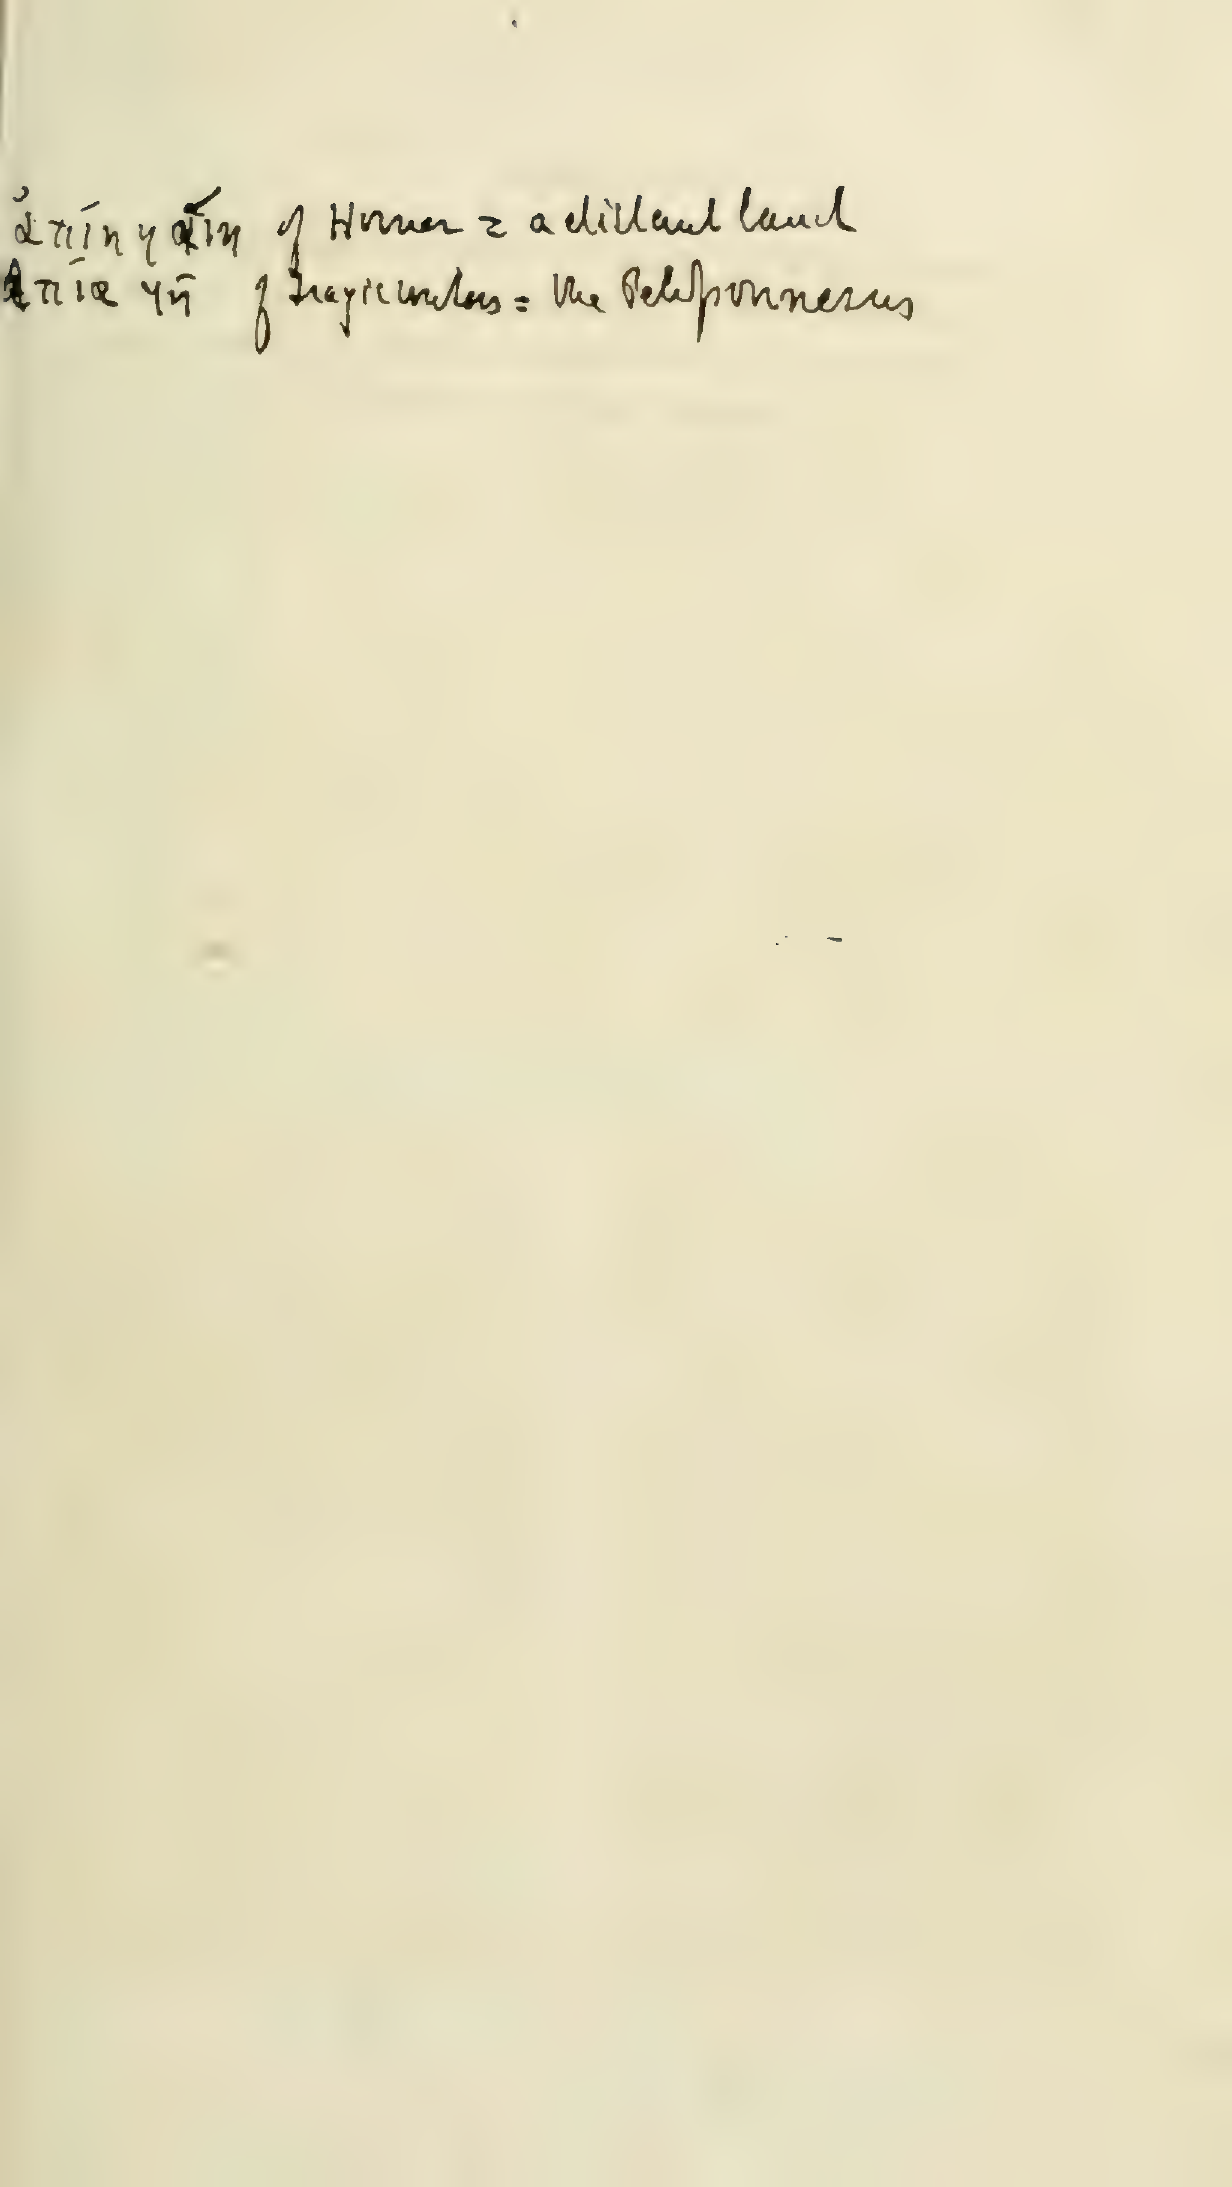 ἀπίη γαίη of Homer = a distant land
Ἀπία γῆ of Tragic writers = the Peloponnesus